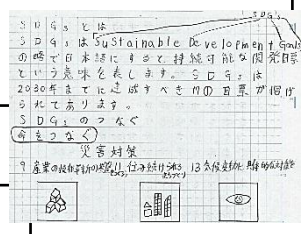 SDGs
SDGsとは
SDGsはSustainable Development Goals
の略で日本語にすると持続可能な開発目標
という意味を表します。SDGsは
2030年までに達成すべき17の目標が掲げ
られてあります。
SDGsのつなぐ
命をつなぐ
災害対策
9 産業の技術革新の基盤 11 住み続けられる 13 気候変動に具体的な対策を